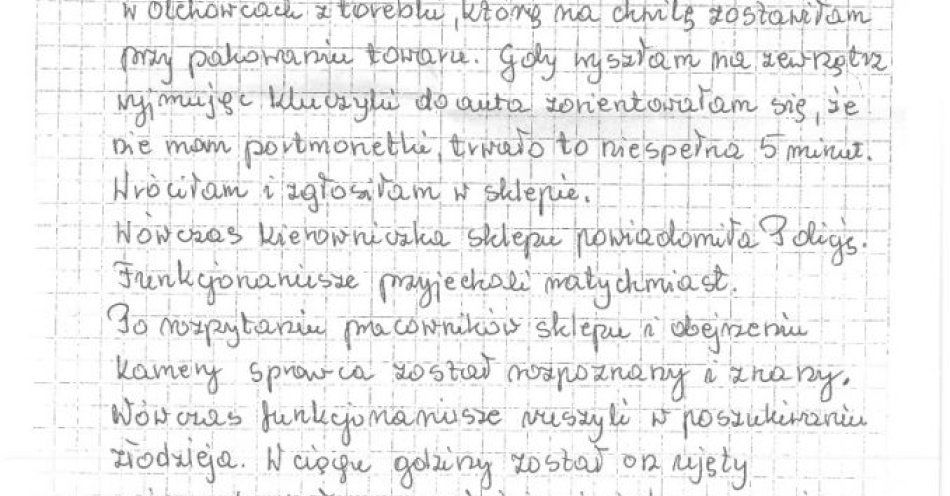 w Olchowcach z torebki, którą na chwilę zostawiłam
przy pakowaniu towaru. Gdy wyszłam na zewnątrz
wyjmując kluczyki do auta zorientowałam się, że
nie mam portmonetki, trwało to niespełna 5 minut.
Wróciłam i zgłosiłam w sklepie.
Wówczas kierowniczka sklepu powiadomiła Policję.
Funkcjonariusze przyjechali natychmiast.
Po rozpytaniu pracowników sklepu i obejrzeniu
kamery sprawca został rozpoznany i znany.
Wówczas funkcjonariusze ruszyli w poszukiwaniu
złodzieja. W ciągu godziny został on ujęty